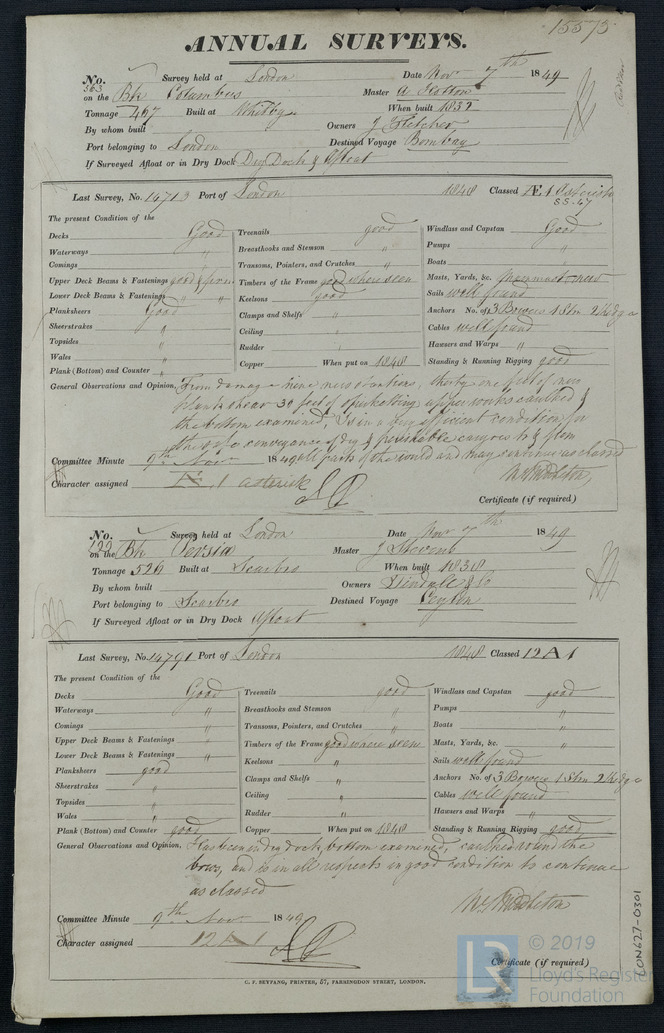 15573
ANNUAL SURVEYS.
No. Survey held at London Date Nov 7th 1849
563 on the Bk Columbus Master A Hotton
Tonnage 467 Built at Whitby When built 1832
By whom built Owners J Fletcher
Port belonging to London Destined Voyage Bombay
If Surveyed Afloat or in Dry Dock Dry Dock & Afloat
Last Survey, No. 14713 Port of London 1848 Classed Æ 1 Asterisk
SS-47
The present Condition of the
Decks Good Treenails good Windlass and Capstan Good
Waterways " Breasthooks and Stemson " Pumps "
Comings " Transoms, Pointers, and Crutches " Boats "
Upper Deck Beams & Fastenings good Timbers of the Frame good where seen Masts, Yards, &c.
Lower Deck Beams & Fastenings " " Keelsons good Sails well found
Planksheers Good Clamps and Shelfs " Anchors No. of 3 Bowers 1 Strm 2 Kedge
Sheerstrakes " Ceiling " Cables well found
Topsides " Rudder " Hawsers and Warps "
Wales " Copper When put on 1848 Standing & Running Rigging good
Plank (Bottom) and Counter "
General Observations and Opinion, From damage nine new stantions, thirty one feet of new
plank shear 30 feet of spirketting upper works caulked &
the bottom examined, Is in a very efficient condition for
the safe conveyance of dry & perishable cargoes to & from
all parts of the world and may continue as classed
Committee Minute 9th Nov 1849
Character assigned Æ 1 asterisk
Middleton
Certificate (if required)
No. Survey held at London Date Nov 7th 1849
122 on the Bk Persia Master J Stevens
Tonnage 520 Built at Scarbro When built 1838
By whom built Owners Tindall & Co
Port belonging to Scarbro Destined Voyage Ceylon
If Surveyed Afloat or in Dry Dock Afloat
Last Survey, No. 14791 Port of London 1848 Classed 12 A 1
The present Condition of the
Decks Good Treenails good Windlass and Capstan good
Waterways " Breasthooks and Stemson " Pumps "
Comings " Transoms, Pointers, and Crutches " Boats "
Upper Deck Beams & Fastenings " Timbers of the Frame good where seen Masts, Yards, &c. "
Lower Deck Beams & Fastenings " Keelsons " Sails well found
Planksheers good Clamps and Shelfs " Anchors No. of 3 Bowers 1 Strm 2 Kedge
Sheerstrakes " Ceiling " Cables well found
Topsides " Rudder " Hawsers and Warps "
Wales " Copper When put on 1848 Standing & Running Rigging good
Plank (Bottom) and Counter good
General Observations and Opinion, Has been in dry dock, bottom examined, caulked round the
bows, and is in all respects in good condition to continue
as classed
Middleton
Committee Minute 9th Nov 1849
Character assigned 12 A 1
Certificate (if required)
C. F. SEYFANG, PRINTER, 57, FARRINGDON STREET, LONDON.
LON627-0301
LR © 2019
Lloyd's Register
Foundation